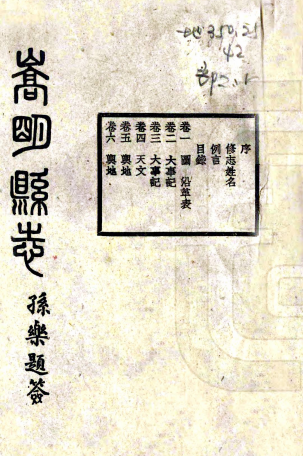 地350.25
42
部2.1
序
修志姓名
例言
目錄
卷一 圖 沿革表
卷二 大事記
卷三 大事記
卷四 天文
卷五 輿地
卷六 輿地
嵩明縣志
孫樂題簽